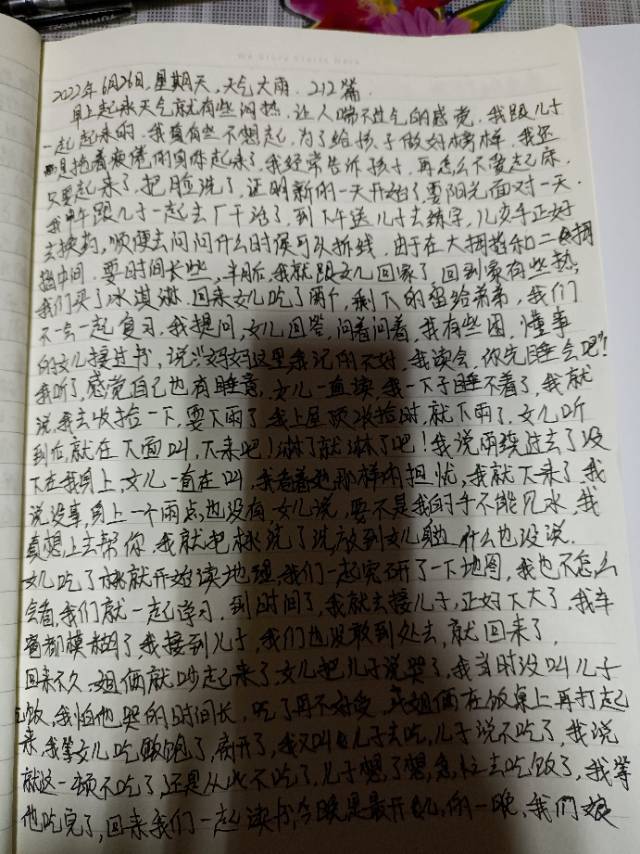 2022年6月26日,星期天,天气大雨.212篇.
早上起来天气就有些闷热,让人喘不过气的感觉,我跟儿子
一起起来的.我真有些不想起,为了给孩子做好榜样,我还
是拖着疲倦的身体起来了,我经常告诉孩子,再怎么不要赖床.
只要起来了,把脸洗了,证明新的一天开始了,要阳光面对一天.
我中午跟儿子一起去厂干活了,到下午送儿子去练字,儿女手正好
去换药,顺便去问问什么时侯可以拆线.由于在大拇指和二拇
指中间.要时间长些,半后,我就跟女儿回家了,回到家有些热,
我们买了冰淇淋.回来女儿吃了两个,剩下的留给弟弟,我们
不一会一起复习.我提问,女儿回答,问着问着,我有些困,懂事
的女儿接过书,说:"妈妈这里我记的不好,我读会,你先睡会吧!"
我听了,感觉自己也有睡意,女儿一直读,我一下子睡不着了,我就
说我去收拾一下,要下雨了,我上屋顶收拾时,就下雨了,女儿听
到后,就在下面叫,下来吧!淋了就淋了吧!我说雨绕过去了没
下在我身上,女儿一直在叫,我看着她那样的担忧,我就下来了,我
说没事,身上一个雨点,也没有.女儿说,要不是我的手不能见水,我
真想上去帮你,我就把桃洗了洗,放到女儿身边,什么也没说.
女儿吃了桃就开始读地理,我们一起究研了一下地图,我也不怎么
会看,我们就一起学习.到时间了,我就去接儿子,正好下大了,我车
窗都模糊了,我接到儿子,我们也没敢到处去,就回来了.
回来不久,姐俩就吵起来了,女儿把儿子说哭了,我当时没叫儿子
吃饭,我怕他哭的时间长,吃了再不好受,姐俩在饭桌上再打起
来,我等女儿吃饭饱了,离开了,我又叫儿子去吃,儿子说不吃了,我说
就这一顿不吃了,还是从此不吃了,儿子想了想,急忙去吃饭了,我等
他吃完了,回来我们一起读书,今晚是最开心,的一晚,我们娘